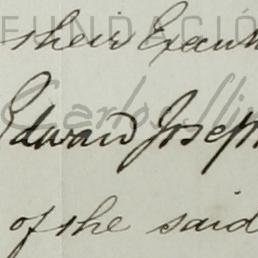 FUNDACIÓ
their Execut
Edward Joseph
of the said